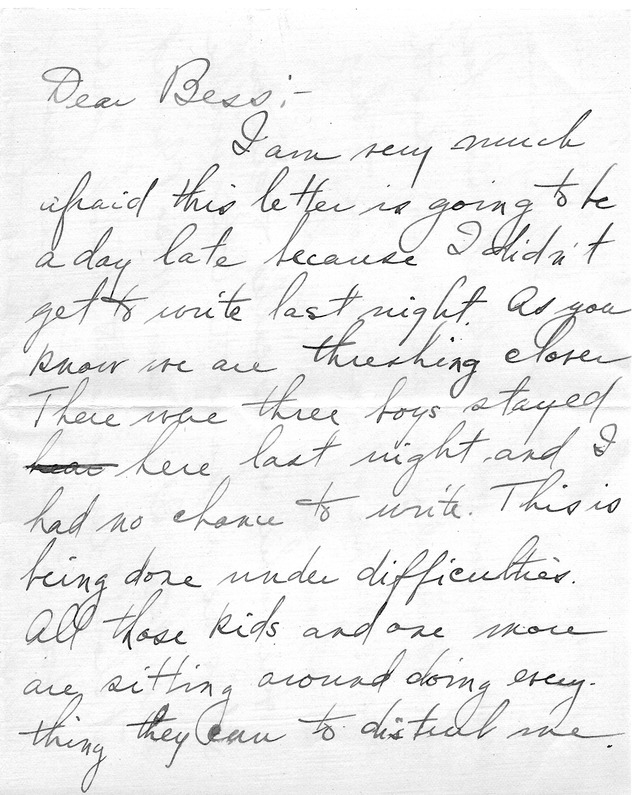 Dear Bess:-
I am very much
afraid this letter is going to be
a day late because I didn't
get to write last night. As you
know we are threshing clover
There were three boys stayed
hear here last night and I
had no chance to write. This is
being done under difficulties.
All those kids and one more
are sitting around doing every-
thing they can to disturb me.